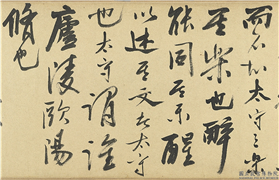 而不知太守之樂
其樂也醉
能同其樂醒
以述其文者太守
也太守謂誰
廬陵歐陽
脩也